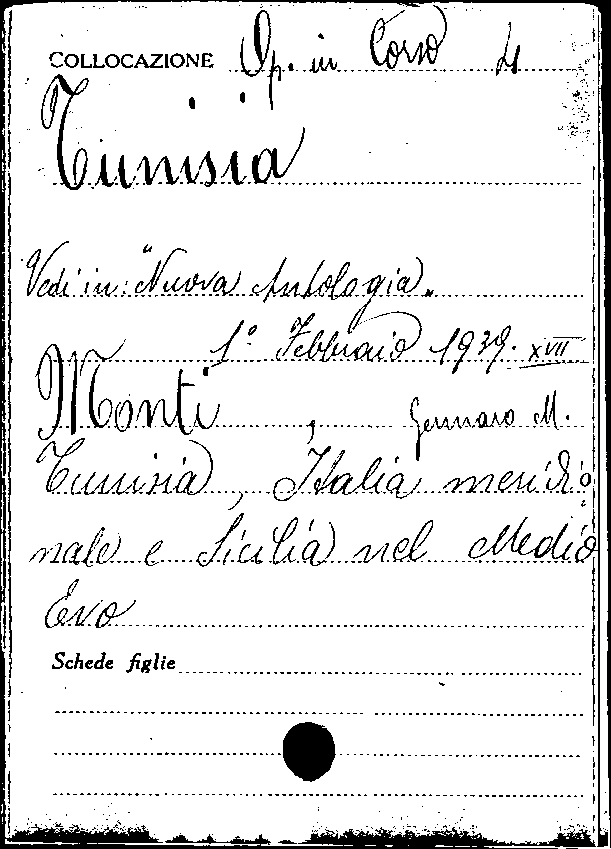 COLLOCAZIONE Op. in Corso 4
Tunisia
Vedi in: "Nuova Antologia„
1° Febbraio 1939. XVII
Monti , Gennaro M.
Tunisia, Italia meridio
nale e Sicilia nel Medio
Evo
Schede figlie